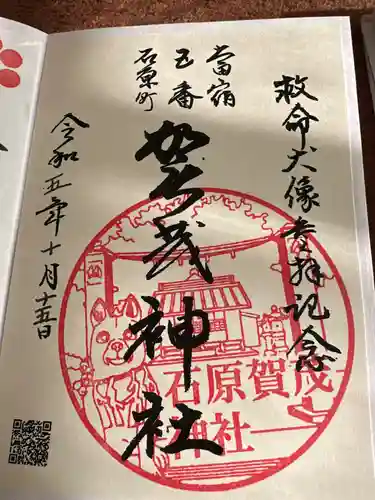 救命犬像参拝記念
當宿
五番
石原町
賀茂神社
令和五年十月十五日
石原賀茂
神社